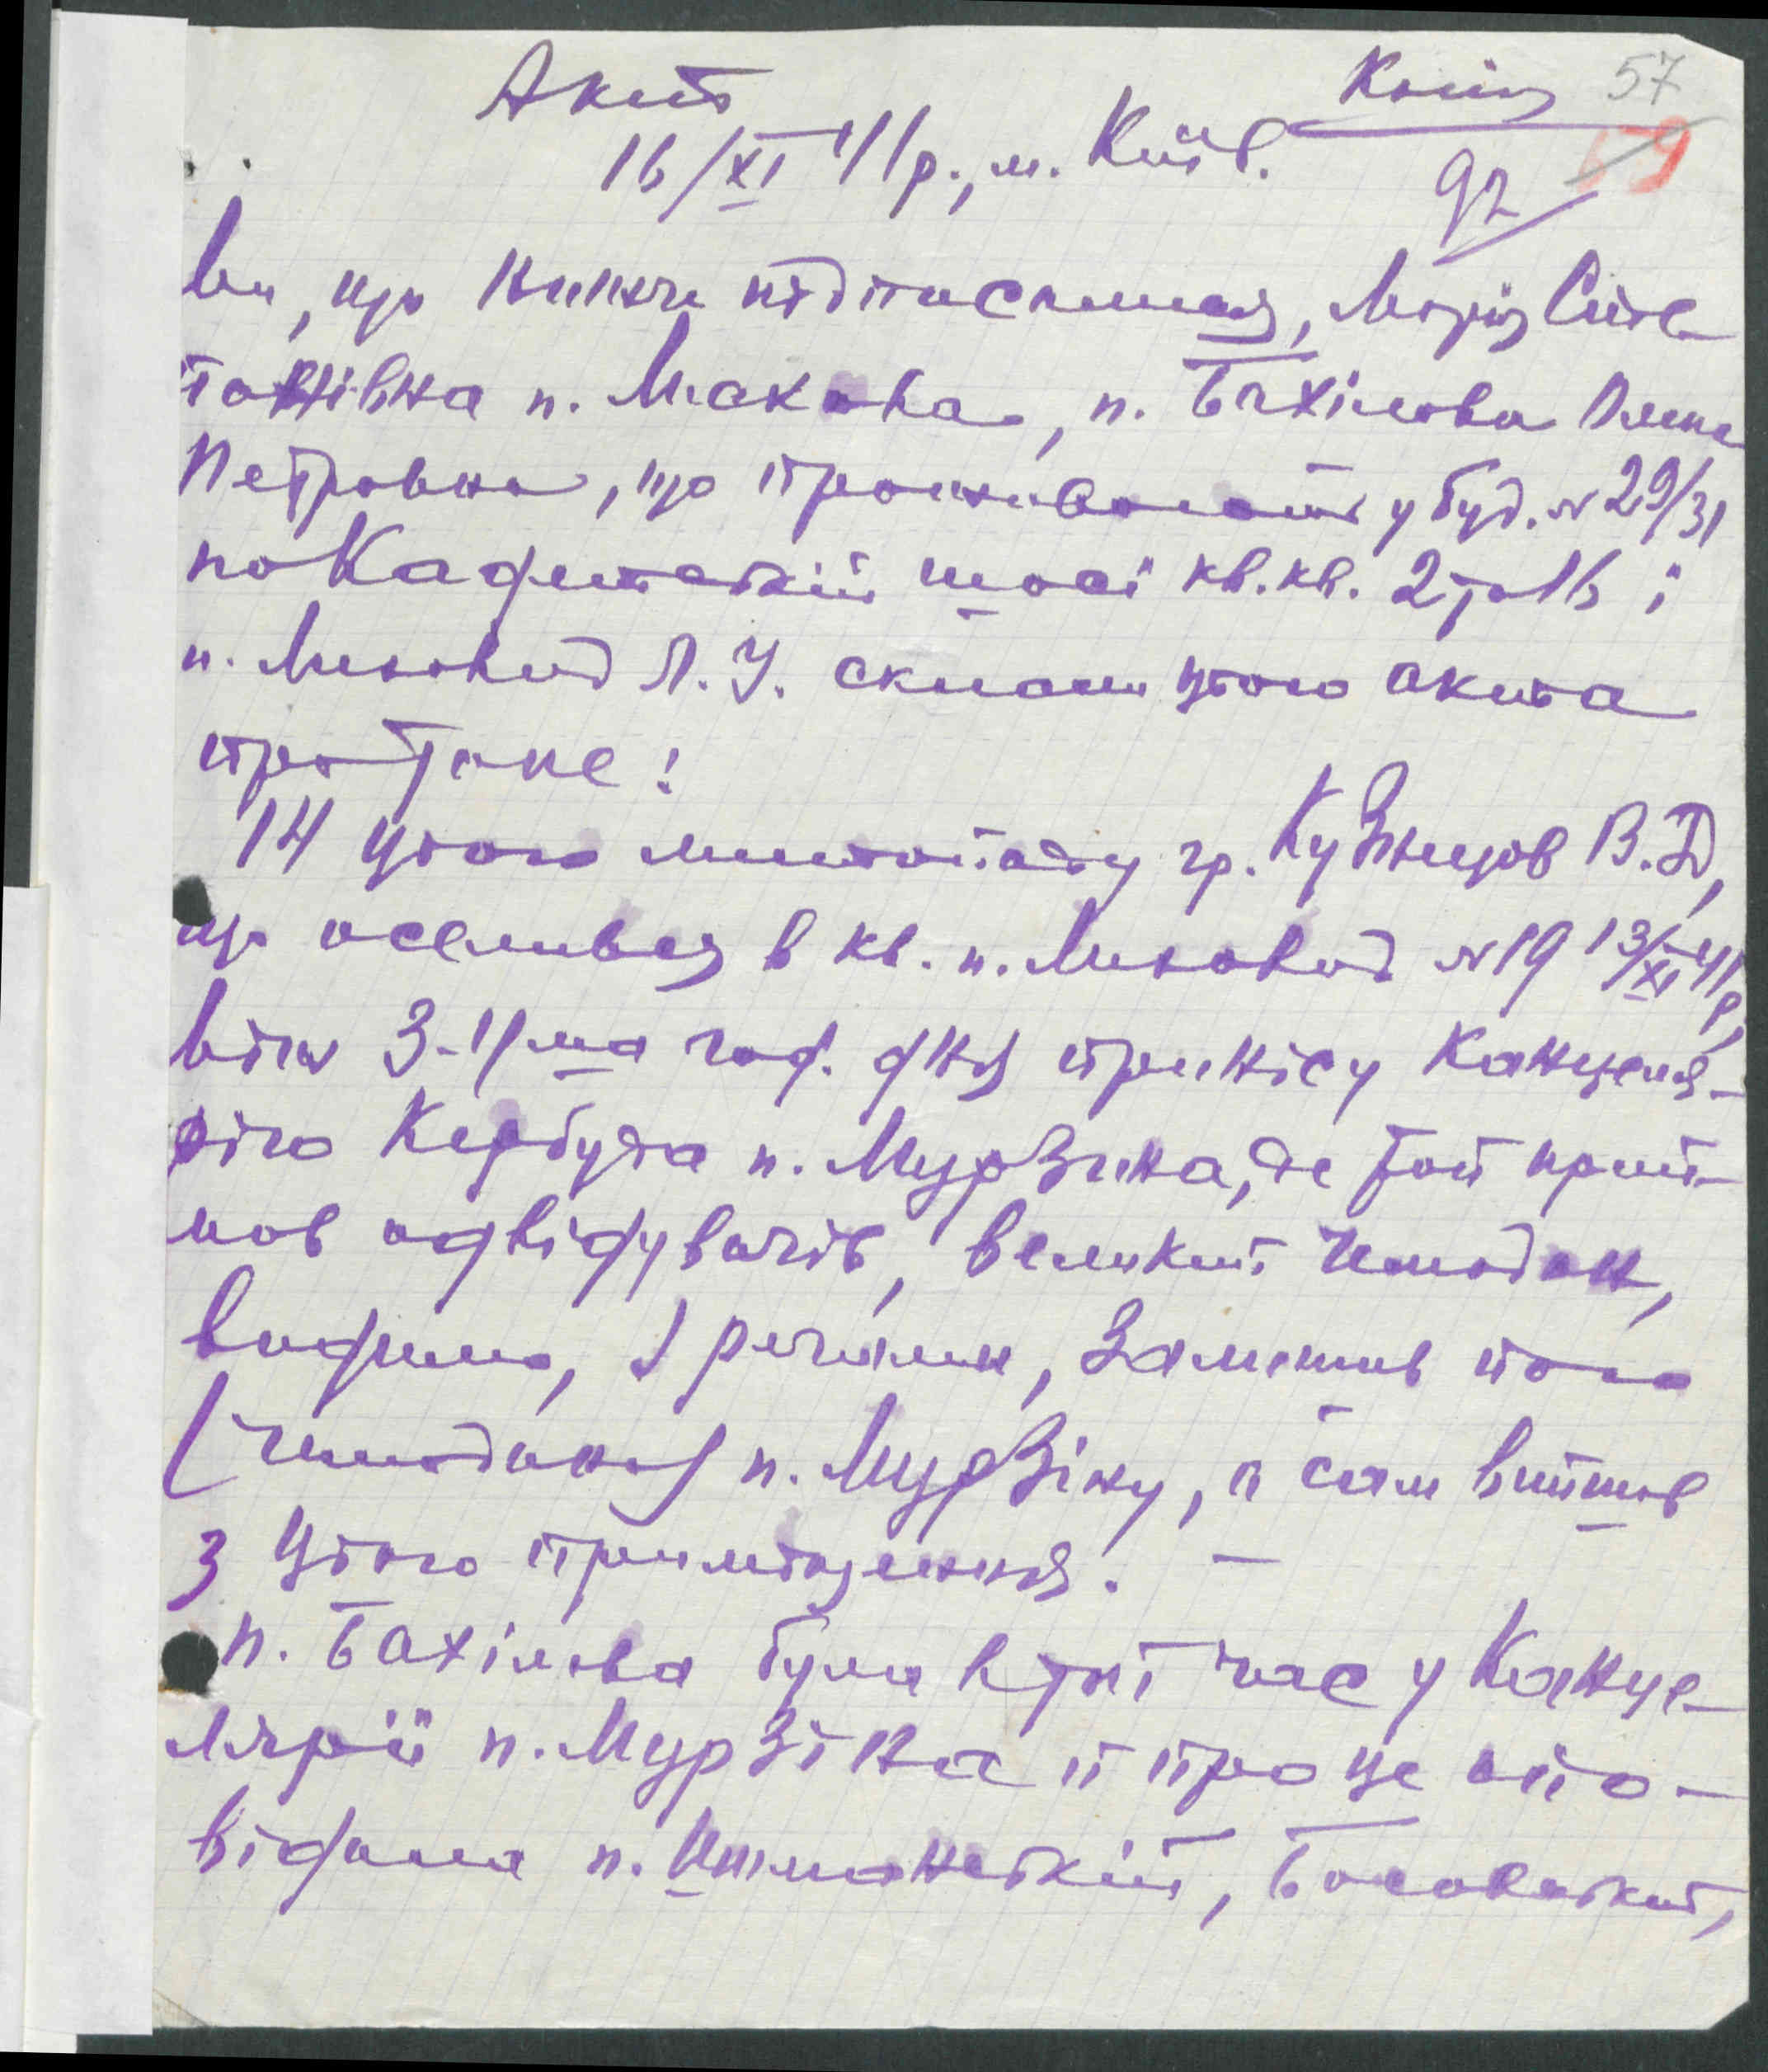 Копія 57
Акт
59
16/XI 41р., м. Київ.
92
Ми, що нижче підписалися, Марія Сил
п. Макова, п. Бахілова Олена
Петровна, що проживають у буд. № 29/31
по Кадетській шосі кв. кв. 2 та 16 і
п. Лисовид Л. У. склали цього акта
про таке:
14 цього листопаду гр. Кузнецов В. Д,
що оселився в кв. п. Лисовид № 19 13/XI 41р,
біля 3-4-ма год. дня приніс у канцеля-
рію Кербуда п. Мурзина, де той прий-
мов одвідувачів, великий чемодан,
видимо, з речами, залишив його
(чемодана) п. Мурзіну, а сам вийшов
з цього приміщення. —
п. Бахілова була в той час у канце-
лярії п. Мурзіна й про це опо-
відала п. Ішманській, Босовській,